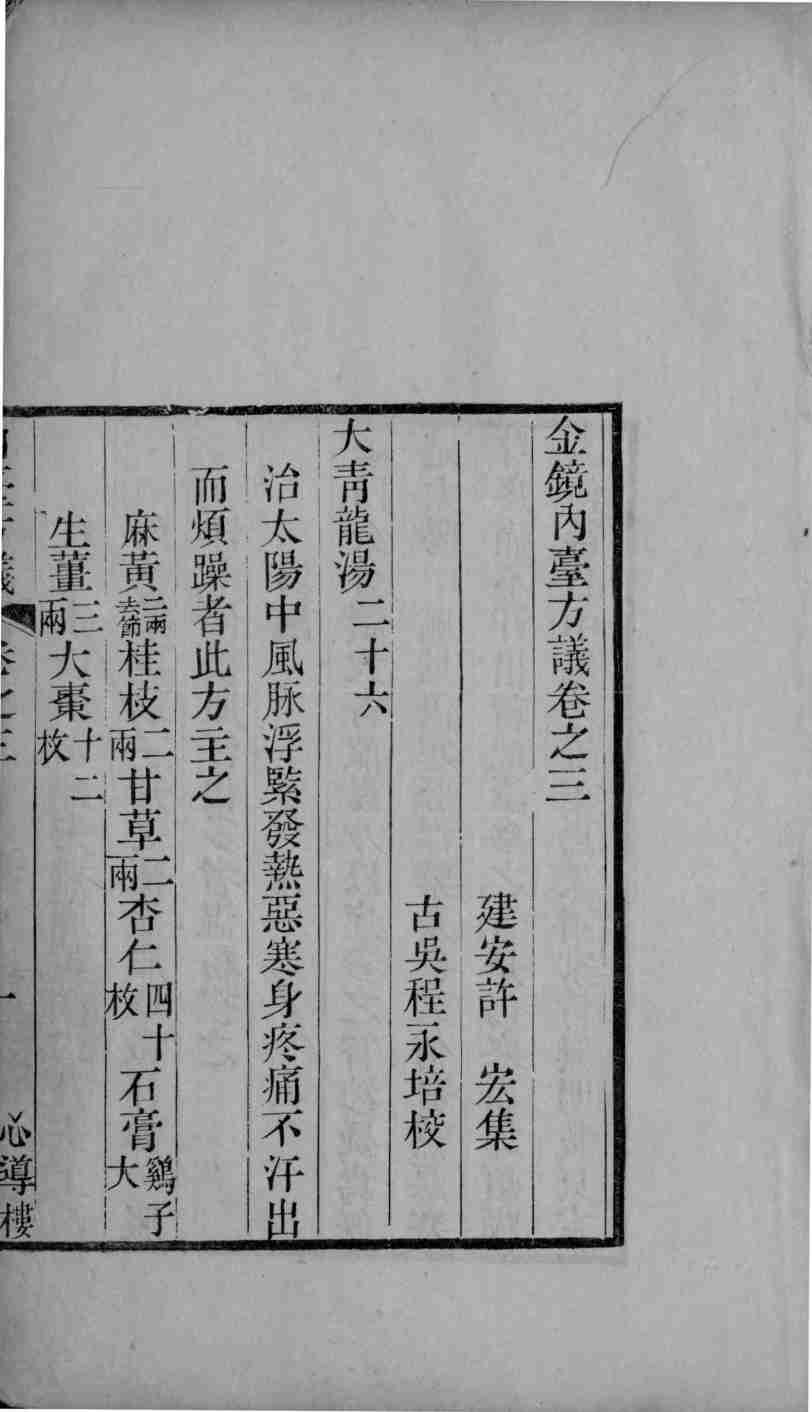 金鏡內臺方議卷之三
建安許　宏集
古吳程永培校
大靑龍湯二十六
治太陽中風脉浮緊發熱惡寒身疼痛不汗出
而煩躁者此方主之
麻黃二兩去節桂枝二兩甘草二兩杏仁四十枚石膏鷄子大
生薑三兩大棗十二枚
方議　卷之三　一　心導樓